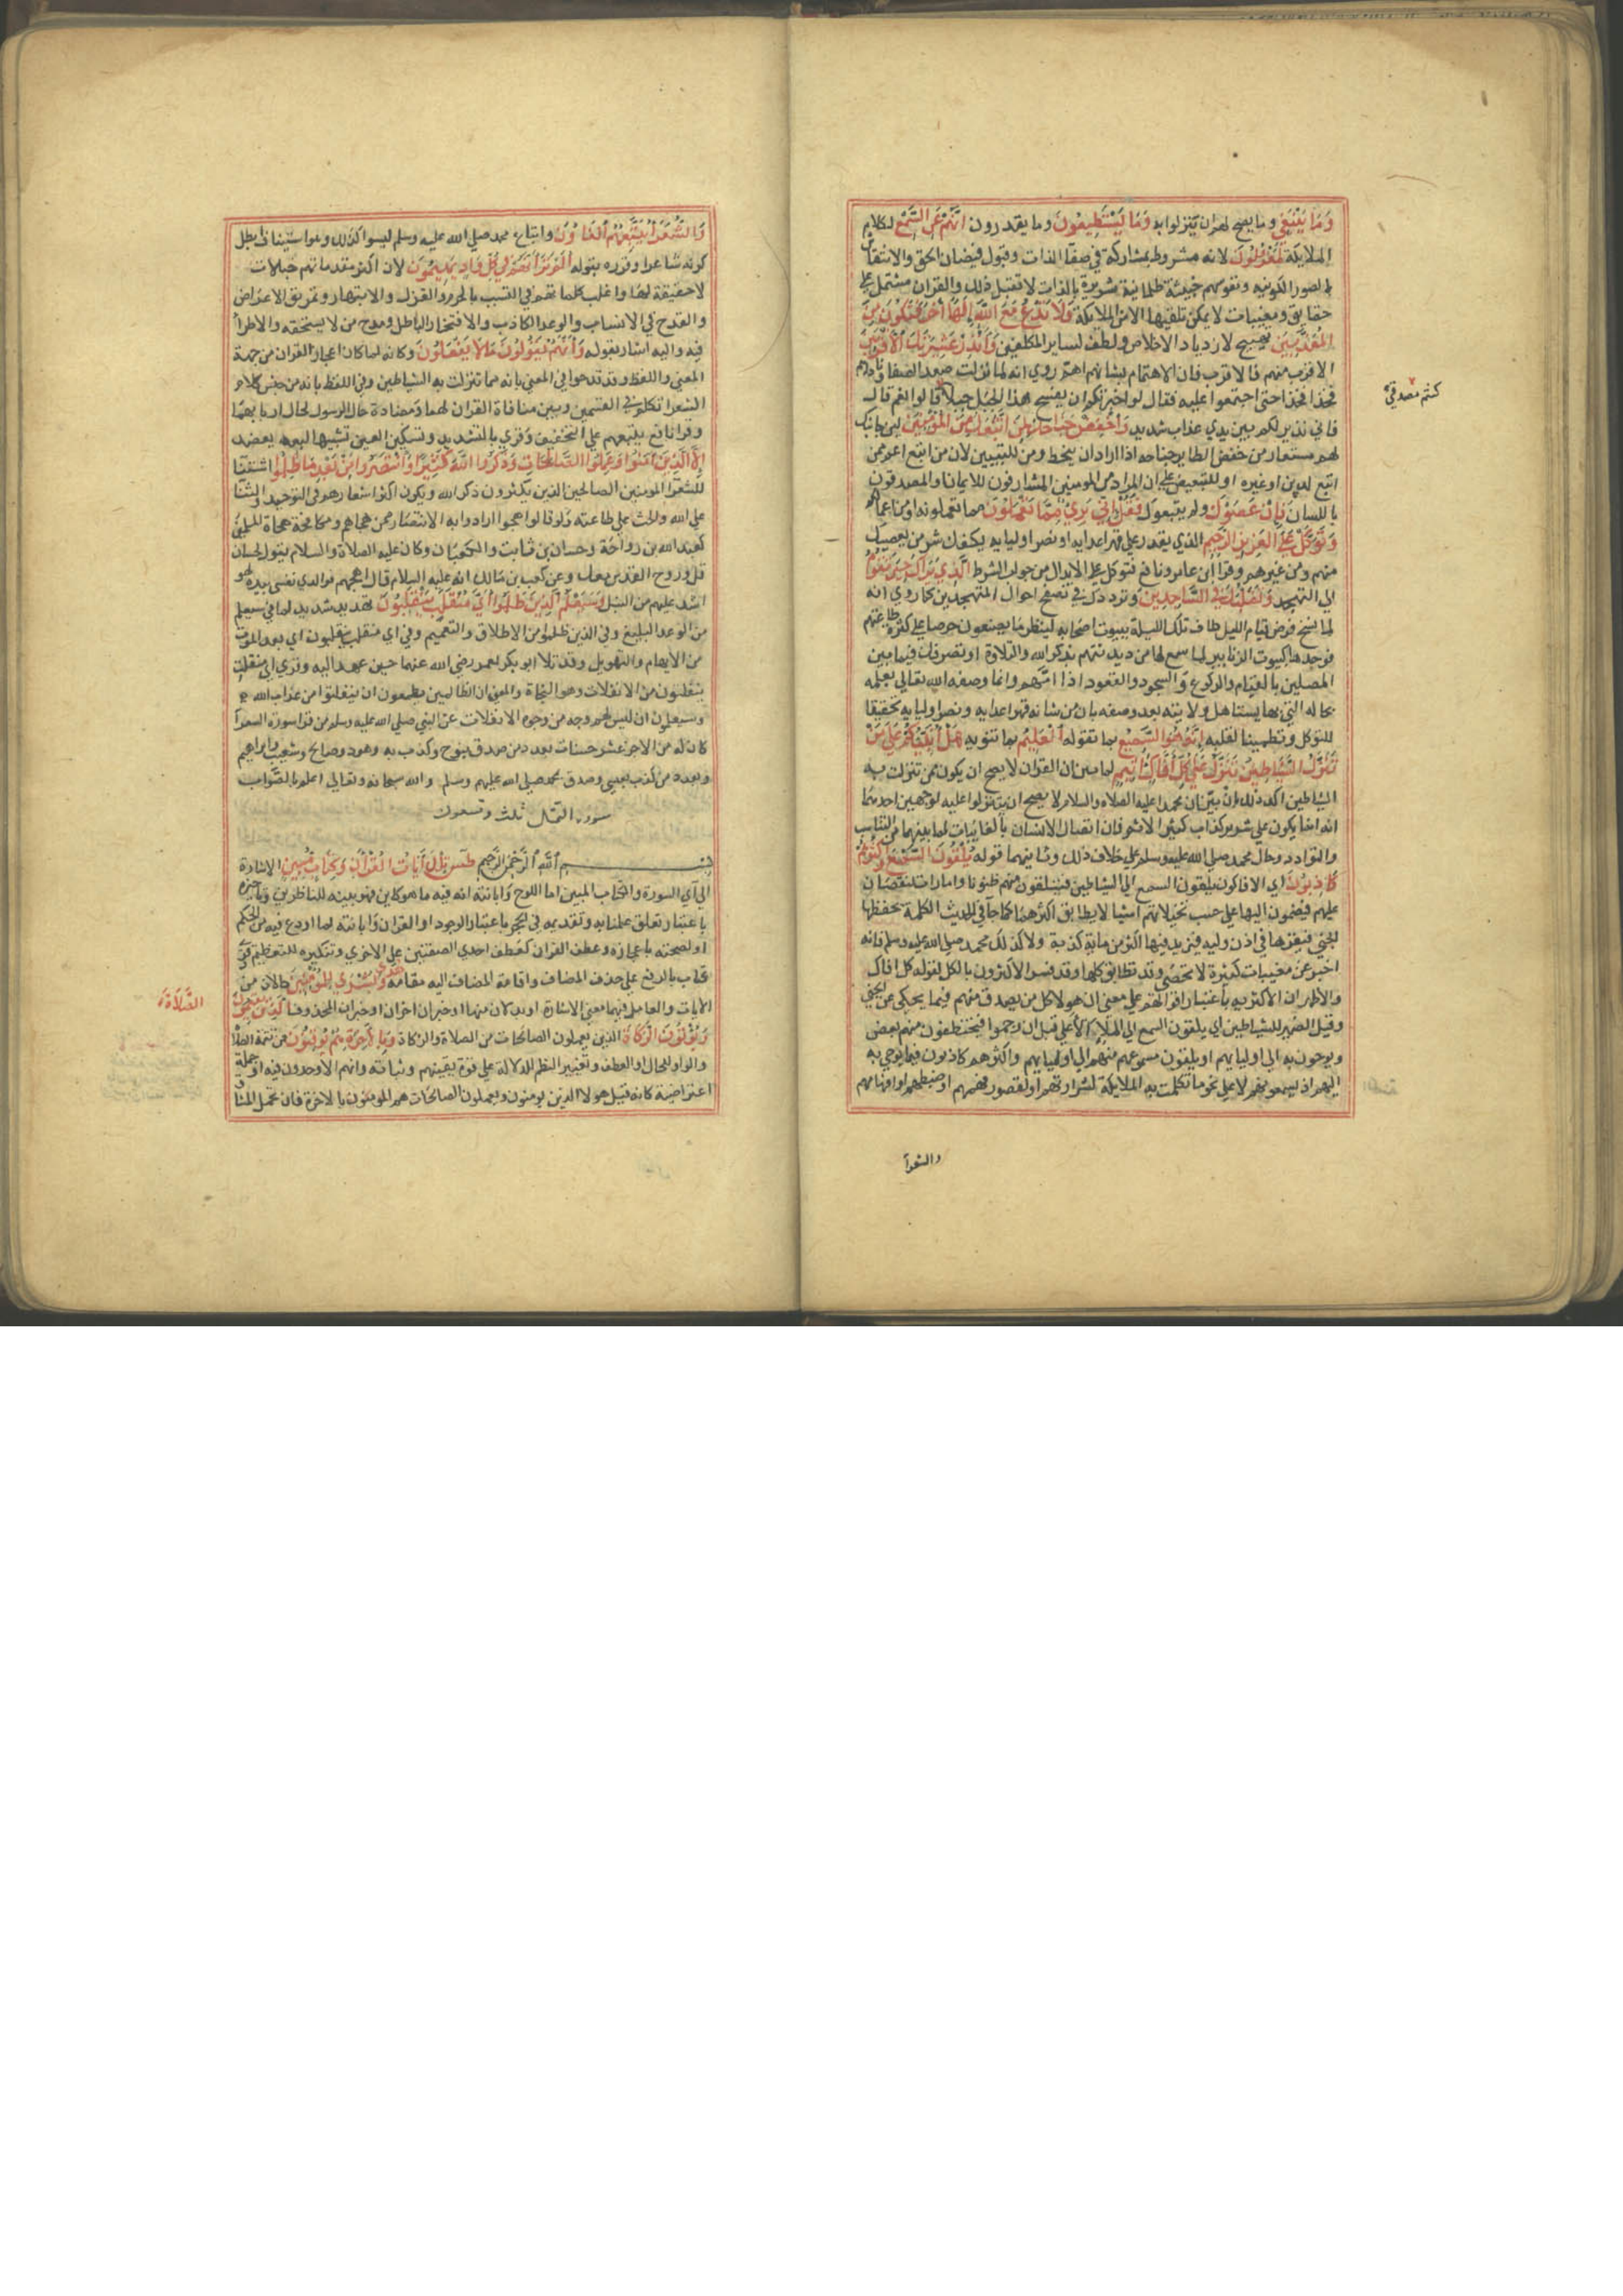 وَمَا يَنْبَغِي وما يصح لهم ان يتنزلوا به وَمَا يَسْتَطِيعُونَ وما يقدرون اِنَّهُمْ عَنِ السَّمْعِ لكلام
الملايكة لَمَعْزُولُونَ لانه مشروط بمشاركة في صفآ الذات وقبول فيضان الحق والانتقاش
بالصور الكونيه ونفوسهم خبيثة ظلمانية شريرة بالذات لا تقبل ذلك والقران مشتمل على
حقايق ومغيبات لا يمكن تلقيها الا من الملايكة فَلَا تَدْعُ مَعَ اللَّهِ اِلَهًا آخَرَ فَتَكُونَ مِنَ
المُعَذَّبِينَ تهييج لازدياد الاخلاص ولطف لساير المكلفين وَأَنْذِرْ عَشِيرَتَكَ الأَقْرَبِينَ
الاقرب منهم فالاقرب فان الاهتمام بشانهم اهم روي انه لما نزلت صعد الصفا وناداهم
فخذا فخذا حتى اجتمعوا عليه فقال لو اخبرتكم ان بسفح هذا الجبل خيلا قالوا نعم قال
كنتم مصدقيّ
فاني نذير لكم بين يدي عذاب شديد وَاخْفِضْ جَنَاحَكَ لِمَنِ اتَّبَعَكَ مِنَ المُؤْمِنِينَ لين جانبك
لهم مستعار من خفض الطاير جناحه اذا اراد ان ينحط ومن للتبيين لان من اتبع اعم ممن
اتبع لدين او غيره او للتبعيض على ان المراد من المومنين المشارفون للايمان او المصدقون
باللسان فَإِنْ عَصَوْكَ ولم يتبعوك فَقُلْ اِنِّي بَرِيءٌ مِمَّا تَعْمَلُونَ مما تعملونه او من اعمالكم
وَتَوَكَّلْ عَلَى العَزِيزِ الرَّحِيمِ الذي يقدر على قهر اعدايه ونصر اوليايه يكفك شر من يعصيك
منهم ومن غيرهم وقرا ابن عامر ونافع فتوكل على الابدال من جواب الشرط الَّذِي يَرَاكَ حِينَ تَقُومُ
الي التهجد وَتَقَلُّبَكَ فِي السَّاجِدِينَ وترددك في تصفح احوال المتهجدين كما روي انه
لما نسخ فرض قيام الليل طاف تلك الليلة ببيوت اصحابه لينظر ما يصنعون حرصا على كثرة طاعتهم
فوجدها كبيوت الزنابير لما سمع لها من دندنتهم بذكر الله والتلاوة او تصرفك فيما بين
المصلين بالقيام والركوع والسجود والقعود اذا امّهم وانما وصفه الله تعالى بعلمه
بحاله التي بها يستاهل ولايته بعد وصفه بان من شانه قهر اعدايه ونصر اوليايه تحقيقا
للتوكل وتطمينا لقلبه اِنَّهُ هُوَ السَّمِيعُ بما تقوله العَلِيمُ بما تنويه هَلْ أُنَبِّئُكُمْ عَلَى مَنْ
تَنَزَّلُ الشَّيَاطِينُ تَنَزَّلُ عَلَى كُلِّ أَفَّاكٍ أَثِيمٍ لما بين ان القران لا يصح ان يكون مما تنزلت به
الشياطين اكد ذلك بان بيّن ان محمدا عليه الصلاة والسلام لا يصح ان يتنزلوا عليه لوجهين احدهما
انه انما يكون على شرير كذاب كثير الاثم فان اتصال الانسان بالغايبات لما بينهما من التناسب
والتوادد وحال محمد صلى الله عليه وسلم على خلاف ذلك وثانيهما قوله يُلْقُونَ السَّمْعَ وَأَكْثَرُهُمْ
كَاذِبُونَ اي الافاكون يلقون السمع الى الشياطين فيتلقون منهم ظنونا وامارات لنقصان
علمهم فيضمون اليها على حسب تخيلاتهم اشيا لا يطابق اكثرها كما جآ في الحديث الكلمة يخطفها
الجني فيقرها في اذن وليه فيزيد فيها اكثر من ماية كذبة ولا كذلك محمد صلى الله عليه وسلم فانه
اخبر عن مغيبات كثيرة لا تحصى وقد تطابق كلها وقد فسر الاكثرون بالكل لقوله كل افاك
والاظهر ان الاكثرية باعتبار اقوالهم على معنى ان هولا كل من يصدق منهم فيما يحكى عن الجني
وقيل الضمير للشياطين اي يلقون السمع الى الملا الاعلى قبل ان رجموا فيختطفون منهم بعض
ويوحون به الى اوليايهم او يلقون مسموعهم منهم الى اوليايهم واكثرهم كاذبون فيما يوحي به
اليهم اذ يسمعونهم لا على نحو ما تكلمت به الملايكة لشرارتهم او لقصور فهمهم او ضبطهم او افهامهم
والشعرآ
وَالشُّعَرَآءُ يَتَّبِعُهُمُ الغَاوُونَ واتباع محمد صلى الله عليه وسلم ليسوا كذلك وهو استيناف ابطل
كونه شاعرا وقرره بقوله أَلَمْ تَرَ أَنَّهُمْ فِي كُلِّ وَادٍ يَهِيمُونَ لان اكثر مقدماتهم خيالات
لا حقيقة لها واغلب كلماتهم في النسيب بالحرم والغزل والابتهار وتمزيق الاعراض
والقدح في الانساب والوعد الكاذب والافتخار الباطل ومدح من لا يستحقه والاطرآ
فيه واليه اشار بقوله وَأَنَّهُمْ يَقُولُونَ مَا لَا يَفْعَلُونَ وكانه لما كان اعجاز القران من جهة
المعنى واللفظ وقد قدحوا في المعنى بانه مما تنزلت به الشياطين وفي اللفظ بانه من جنس كلام
الشعرا تكلم في القسمين وبين منافاة القران لهما ومضادة حال الرسول لحال اربابهما
وقرا نافع يتبعهم على التخفيف وقري بالتشديد وتسكين العين تشبيها لبعه بعضد
اِلَّا الَّذِينَ آمَنُوا وَعَمِلُوا الصَّالِحَاتِ وَذَكَرُوا اللَّهَ كَثِيرًا وَانْتَصَرُوا مِنْ بَعْدِ مَا ظُلِمُوا استثنآ
للشعرآ المومنين الصالحين الذين يكثرون ذكر الله ويكون اكثر اشعارهم في التوحيد والثنا
على الله والحث على طاعته ولو قالوا هجوا ارادوا به الانتصار ممن هجاهم ومكافحة هجاة المسلمين
كعبد الله بن رواحة وحسان بن ثابت والكعبان وكان عليه الصلاة والسلام يقول لحسان
قل وروح القدس معك وعن كعب بن مالك انه عليه السلام قال اهجهم فوالذي نفسي بيده لهو
اشد عليهم من النبل وَسَيَعْلَمُ الَّذِينَ ظَلَمُوا أَيَّ مُنْقَلَبٍ يَنْقَلِبُونَ تهديد شديد لما في سيعلم
من الوعد البليغ وفي الذين ظلموا من الاطلاق والتعميم وفي اي منقلب ينقلبون اي بعد الموت
من الايهام والتهويل وقد تلا ابو بكر لعمر رضي الله عنهما حين عهد اليه وقري اي منفلت
ينفلتون من الانفلات وهو النجاة والمعنى ان الظالمين يطمعون ان ينفلتوا من عذاب الله
وسيعلمون ان ليس لهم وجه من وجوه الانفلات عن النبي صلى الله عليه وسلم من قرا سورة الشعرآ
كان له من الاجر عشر حسنات بعدد من صدق بنوح وكذب به وهود وصالح وشعيب وابراهيم
وبعدد من كذب بعيسى وصدق بمحمد صلى الله عليهم وسلم والله سبحانه وتعالى اعلم بالصواب
سورة النمل ثلث وتسعون
بسم الله الرحمن الرحيم طس تِلْكَ آيَاتُ القُرْآنِ وَكِتَابٍ مُبِينٍ الاشارة
الى آي السورة والكتاب المبين اما اللوح وابانته انه خط فيه ما هو كاين فهو يبينه للناظرين وتاخيره
باعتبار تعلق علمنا به وتقديمه في الحجر باعتبار الوجود او القران وابانته لما اودع فيه من الحكم
او لصحته باعجازه وعطف القران كعطف احدى الصفتين على الاخرى وتنكيره للتعظيم وقرئ
كتاب بالرفع على حذف المضاف واقامة المضاف اليه مقامه هُدًى وَبُشْرَى لِلمُؤْمِنِينَ حالان من
الايات والعامل فيهما معنى الاشارة او بدلان منها او خبران اخران او خبران لمحذوف الَّذِينَ يُقِيمُونَ
الصَّلَاةَ
وَيُؤْتُونَ الزَّكَاةَ الذين يعملون الصالحات من الصلاة والزكاة وَهُمْ بِالآخِرَةِ هُمْ يُوقِنُونَ من تتمة الصلة
والواو للحال او العطف وتغيير النظم للدلالة على قوة يقينهم وثباته وانهم الاوحدون فيه او جملة
اعتراضية كانه قيل هولا الذين يومنون ويعملون الصالحات هم الموقنون بالاخرة فان تحمل المشاق